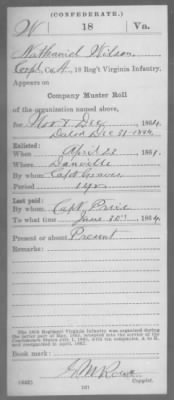 (CONFEDERATE.)
W 18 Va.
Nathaniel Wilson
Corpl, Co. A, 18 Reg't Virginia Infantry.
Appears on
Company Muster Roll
of the organization named above,
for Nov & Dec, 1864.
Dated Dec 31 1864
Enlisted:
When April 23, 1861.
Where Danville
By whom Capt Graves
Period 1 yr
Last paid:
By whom Capt Price
To what time June 30th, 1864.
Present or absent Present
Remarks:
The 18th Regiment Virginia Infantry was organized during the
Book mark:
(642) Copyist.